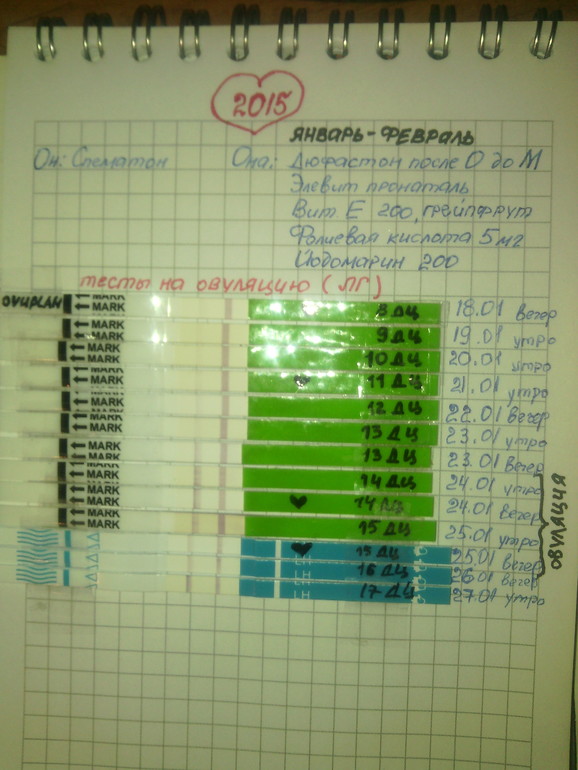 2015
ЯНВАРЬ-ФЕВРАЛЬ
Он: Спематон Она: Дюфастон после О до М
Элевит пронаталь
Вит Е 200, грейпфрут
Фолиевая кислота 5 мг
Йодомарин 200
тесты на овуляцию (ЛГ)
OVUPLAN MARK 8 ДЦ 18.01 вечер
MARK 9 ДЦ 19.01 утро
MARK 10 ДЦ 20.01 утро
MARK 11 ДЦ 21.01 утро
MARK 12 ДЦ 22.01 вечер
MARK 13 ДЦ 23.01 утро
MARK 13 ДЦ 23.01 вечер
MARK 14 ДЦ 24.01 утро
MARK 14 ДЦ 24.01 вечер
MARK 15 ДЦ 25.01 утро
15 ДЦ 25.01 вечер
16 ДЦ 26.01 вечер
17 ДЦ 27.01 утро
ОВУЛЯЦИЯ